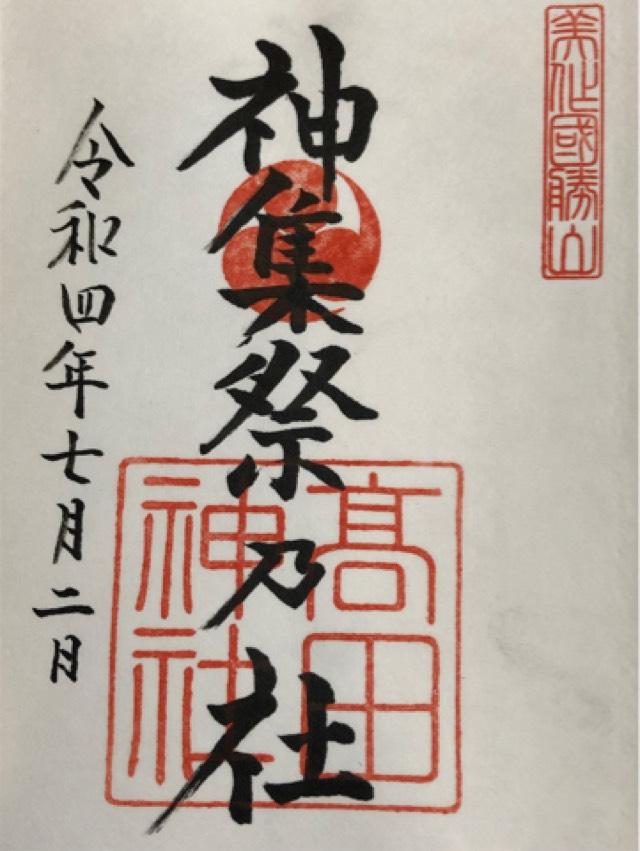 美作國勝山
神集祭乃社
髙田
神社
令和四年七月二日